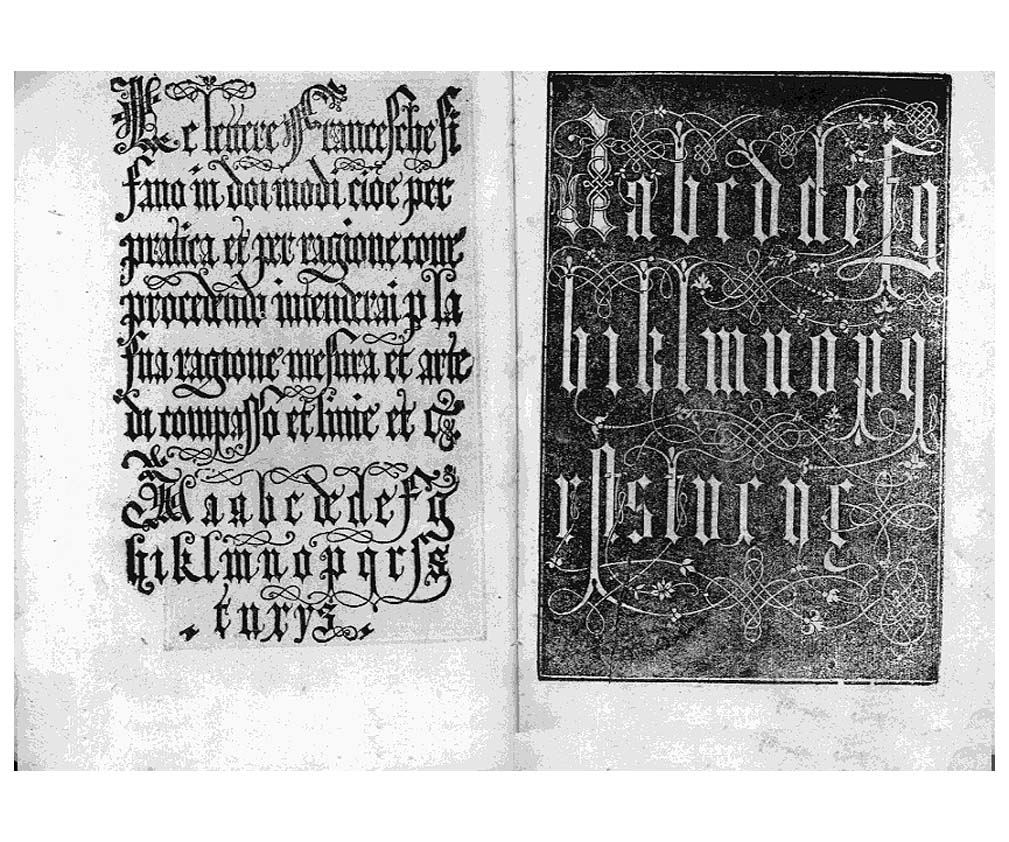 Le lettere Francesche si
fano in doi modi cioe per
pratica et per ragione come
procedendo intenderai p la
sua ragione mesura et arte
di compasso et linie et c
A a a b c d e d e f g
h i k l m n o p q r s s
t u x y z
A a b c d d e f g
h i k l m n o p q
r s s t v x u z